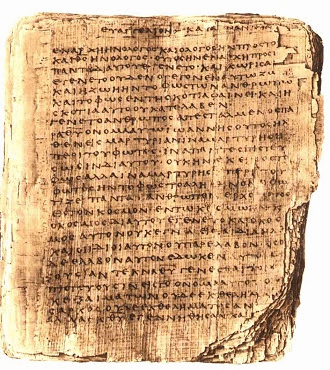 ΕΥΑΓΓΕΛΙΟΝ ΚΑΤΑ ΑΝ
ΕΝΑΡΧΗΗΝΟΛΟΓΟΣΚΑΙΟΛΟΓΟΣΗΝΠΡΟΣΤΟ
ΚΑΙΘΣΗΝΟΛΟΓΟΣ ΟΥΤΟΣΗΝΕΝΑΡΧΗΠΡΟΣ
ΠΑΝΤΑΔΙΑΥΤΟΥΕΓΕΝΕΤΟ ΚΑΙΧΩΡΙΣ
ΕΓΕΝΕΤΟΥΔΕΝ Ο ΓΕΓΟΝΕΝΕΝΑΥΤΩΖΩ
ΗΝΤΟΦΩΣΤΩΝΑΝΘΡΩΠΩ
ΚΑΙΤΟΦΩΣΕΝΤΗΣΚΟΤΙΑΦΑΙΝΕΙΚΑΙΗ
ΣΚΟΤΙΑΑΥΤΟΟΥΚΑΤΕΛΑΒΕΝ
ΓΕΝΕΤΟΑΝΘΡΩΠΟΣΑΠΕΣΤΑΛΜΕΝΟΣΠΑ
ΡΑΘΥΟΝΟΜΑΑΥΤΩΙΩΑΝΝΗΣΟΥΤΟΣΗΛ
ΘΕΝΕΙΣΜΑΡΤΥΡΙΑΝΙΝΑΜΑΡΤΥΡΗΣΗ
ΠΕΡΙΤΟΥΦΩΤΟΣΙΝΑΠΑΝΤΕΣΠΙΣΤΕΥΣΩ
ΣΙΝΔΙΑΥΤΟΥ ΟΥΚΗΝΕΚΕΙΝΟΣΤΟ
ΦΩΣΑΛΛΑΙΝΑΜΑΡΤΥΡΗΣΗ
ΦΩΤΟΣ ΗΝΤΟΦΩΣΤΟΑΛΗΘΙΝΟΝΟΦΩ
ΤΙΖΕΙΠΑΝΤΑΑΝΘΡΩΠΟΝΕΡΧΟ
ΕΙΣΤΟΝΚΟΣΜΟΝΕΝΤΩΚΟΣΜΩΗΝΚΑΙ
ΟΚΟΣΜΟΣΔΙΑΥΤΟΥΕΓΕΝΕΤΟΚΑΙΟΚΟΣ
ΜΟΣΑΥΤΟΝΟΥΚΕΓΝΩΕΙΣΤΑΙΔΙΑΗΛ
ΚΑΙΟΙΙΔΙΟΙΑΥΤΟΝΟΥΠΑΡΕΛΑΒΟΝΟΣ
ΔΕΕΛΑΒΟΝΑΥΤΟΝΕΔΩΚΕΝΑΥΤΟΙ
ΟΥΣΙΑΝΤΕΚΝΑΘΥΓΕΝΕΣΘΑΙΤΟΙ
ΠΙΣΤΕΥΟΥΣΙΝΕΙΣΤΟΟΝΟΜΑΑΥ
ΟΥΚΕΞΑΙΜΑΤΩΝΟΥΔΕΕΚΘΕΛΗΜ
ΣΑΡΚΟΣΟΥΔΕΕΚΘΕΛΗΜΑΤΟΣΑΝ
ΕΓΕΝΝΗΘΗΣΑΝΚΑΙ